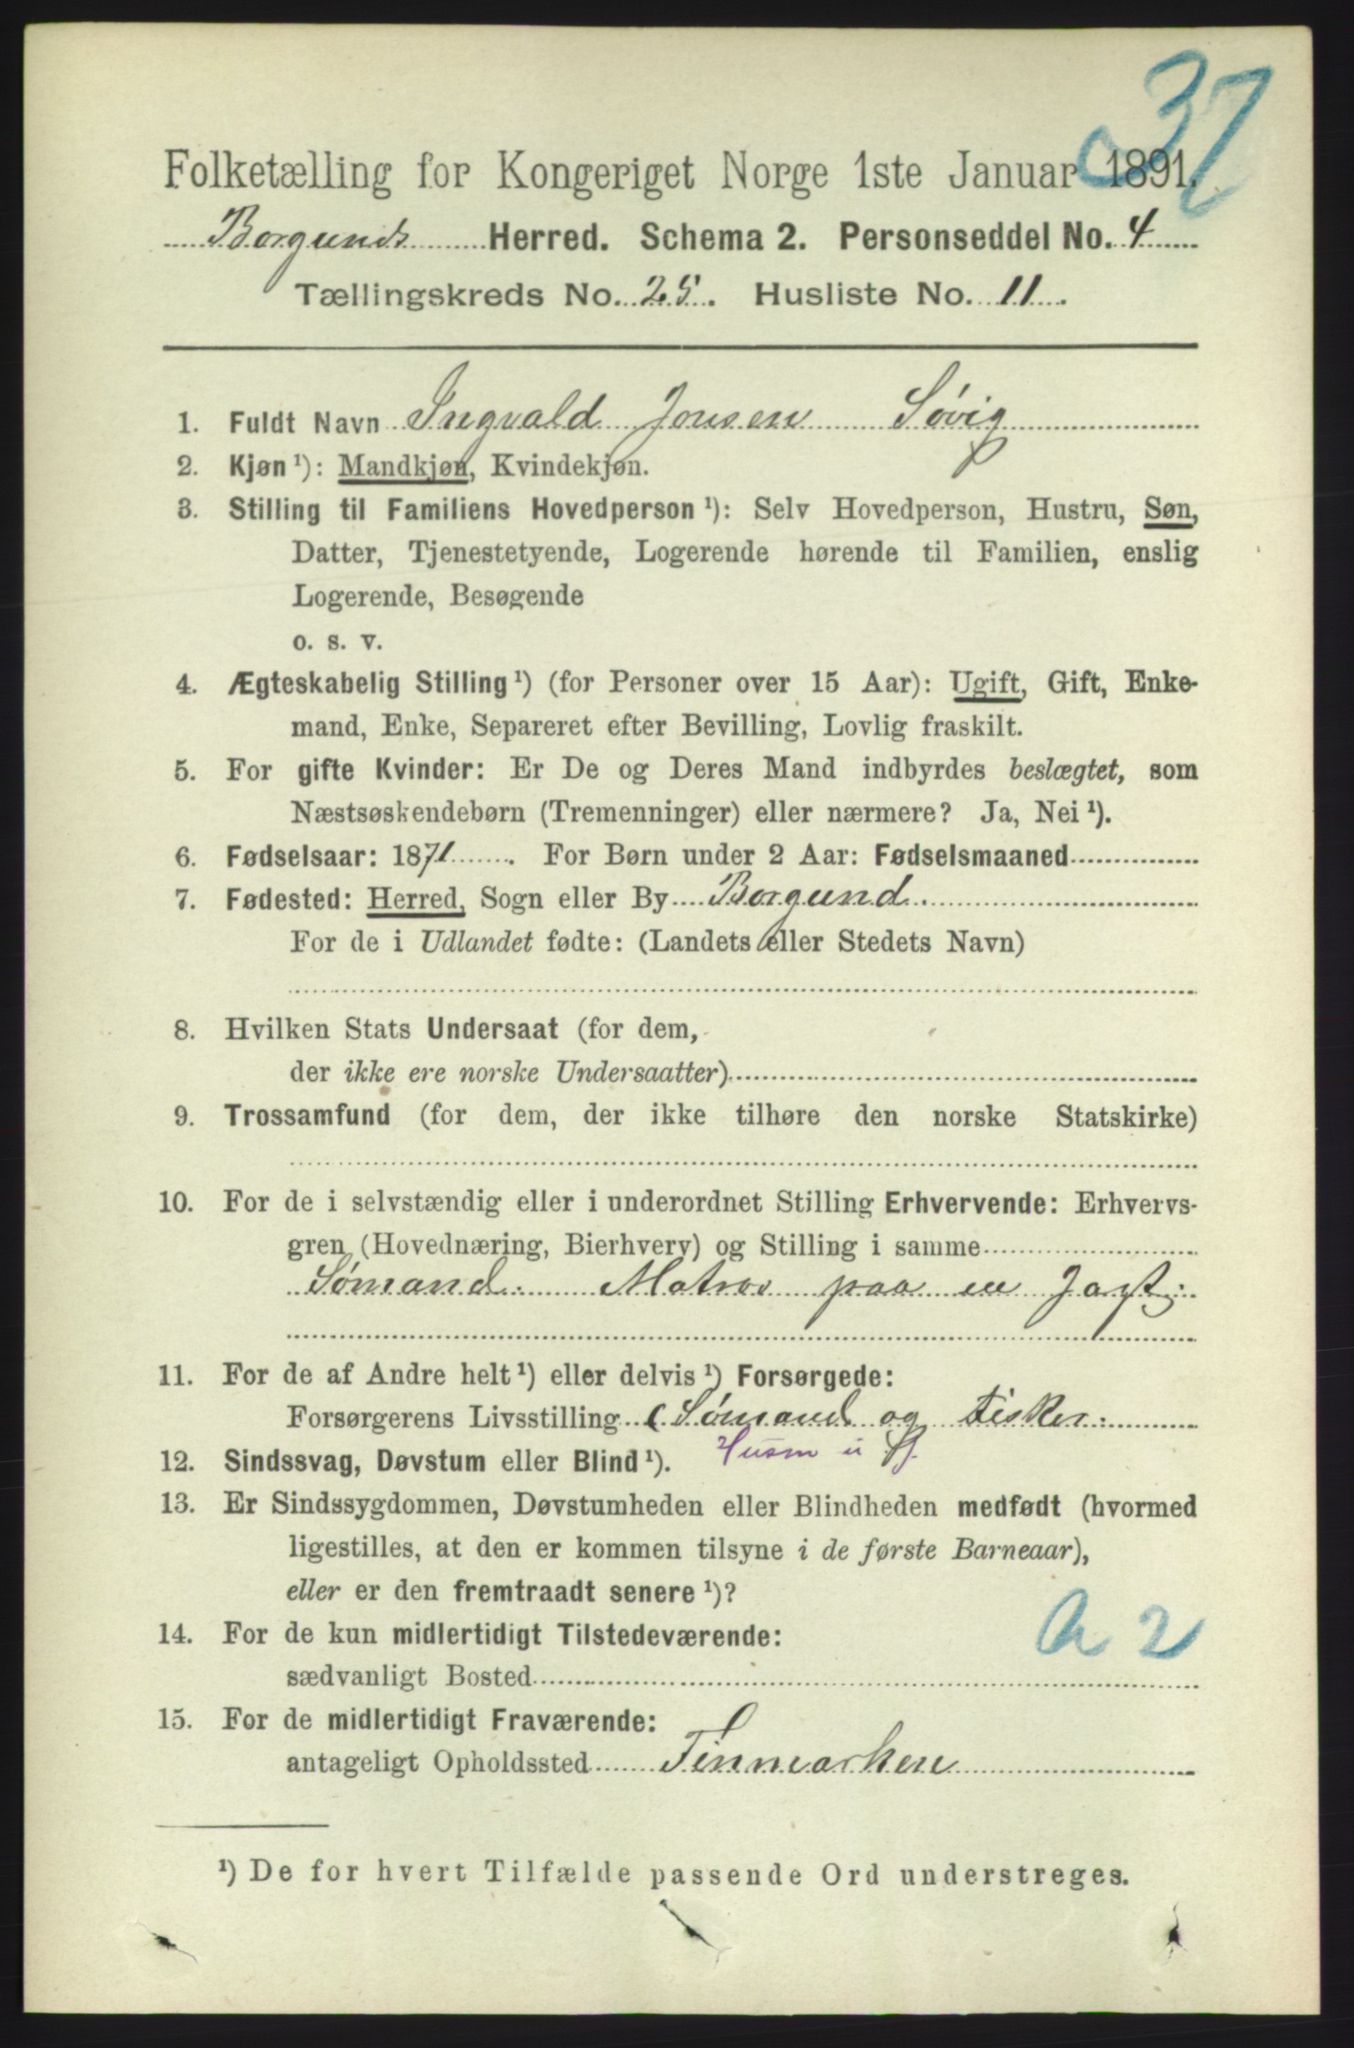 37
Folketælling for Kongeriget Norge 1ste Januar 1891.
Borgunds Herred. Schema 2. Personseddel No. 4
Tællingskreds No. 25. Husliste No. 11.
1. Fuldt Navn Ingvald Jonsen Søvig
2. Kjøn ¹): Mandkjøn, Kvindekjøn.
3. Stilling til Familiens Hovedperson ¹): Selv Hovedperson, Hustru, Søn,
Datter, Tjenestetyende, Logerende hørende til Familien, enslig
Logerende, Besøgende
o. s. v.
4. Ægteskabelig Stilling ¹) (for Personer over 15 Aar): Ugift, Gift, Enke-
mand, Enke, Separeret efter Bevilling, Lovlig fraskilt.
5. For gifte Kvinder: Er De og Deres Mand indbyrdes beslægtet, som
Næstsøskendebørn (Tremenninger) eller nærmere? Ja, Nei ¹).
6. Fødselsaar: 1871. For Børn under 2 Aar: Fødselsmaaned
7. Fødested: Herred, Sogn eller By Borgund.
For de i Udlandet fødte: (Landets eller Stedets Navn)
8. Hvilken Stats Undersaat (for dem,
der ikke ere norske Undersaatter)
9. Trossamfund (for dem, der ikke tilhøre den norske Statskirke)
10. For de i selvstændig eller i underordnet Stilling Erhvervende: Erhvervs-
gren (Hovednæring, Bierhverv) og Stilling i samme
Sømand. Matros paa en Jagt.
11. For de af Andre helt ¹) eller delvis ¹) Forsørgede:
Forsørgerens Livsstilling (Sømand og Fisker.
Husm u J.
12. Sindssvag, Døvstum eller Blind ¹).
13. Er Sindssygdommen, Døvstumheden eller Blindheden medfødt (hvormed
ligestilles, at den er kommen tilsyne i de første Barneaar),
eller er den fremtraadt senere ¹)?
14. For de kun midlertidigt Tilstedeværende:
sædvanligt Bosted
15. For de midlertidigt Fraværende:
antageligt Opholdssted Finmarken
¹) De for hvert Tilfælde passende Ord understreges.